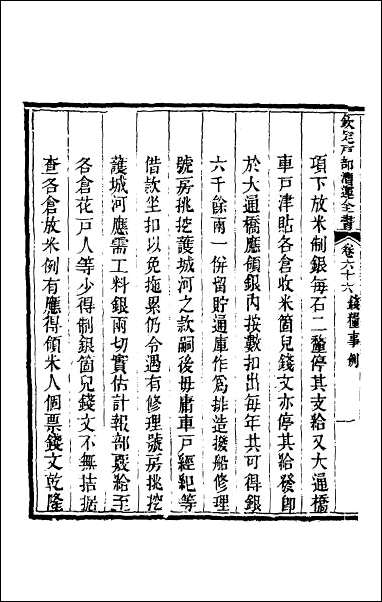 欽定戶部漕運全書
卷六十六 錢糧事例 一
項下放米制銀每石二釐停其支給又大通橋
車戶津貼各倉收米箇兒錢文亦停其給發卽
於大通橋應領銀內按數扣出每年共可得銀
六千餘兩一併留貯通庫作爲排造撥船修理
號房挑挖護城河之款嗣後毋庸車戶經紀等
借款坐扣以免拖累仍令遇有修理號房挑挖
護城河應需工料銀兩切實估計報部覈給至
各倉花戶人等少得制銀箇兒錢文不無拮据
查各倉放米例有應得領米人個票錢文乾隆